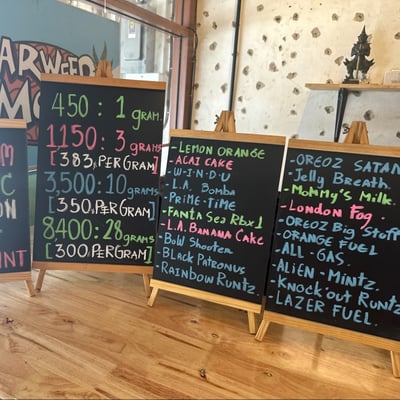 450 : 1 gram.
1,150 : 3 grams
[383.- PER GRAM]
3,500 : 10 grams
[350.- PER GRAM]
8400 : 28 grams
[300.- PER GRAM]
- LEMON ORANGE
- ACAI CAKE
- W-I-N-D-U
- L.A. Bomba
- PRiME-TiME
- FANTA Sea Rbx 1
- L.A. BANANA CAKE
- BoW Shooter
- Black Patronus
- RAINBOW RUNTZ
- OREOZ SATAN
- Jelly Breath.
- MoMMy's Milk.
- London Fog.
- OREOZ BIG Stuff
- ORANGE FUEL
- ALL-GAS.
- ALiEN-MiNTz.
- Knockout Runtz
- LAZER FUEL.